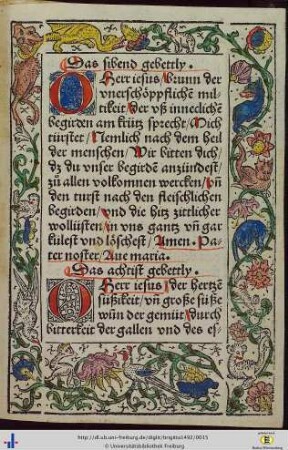 Das sibend gebettly.
O Herr iesus / brunn der
vnerschöppflichē mil
tikeit / der vß innecliche
begirden am krütz sprecht / Mich
türstet / Nemlich nach dem heil
der menschen / Wir bitten dich /
dz du vnser begirde anzündest /
zů allen volkomnen wercken / vñ
den turst nach den fleischlichen
begirden / vnd die hitz zittlicher
wollüsten / in vns gantz vñ gar
külest vnd löschest / Amen. Pa-
ter noster / Aue maria.
Das achtist gebettly.
O Herr iesus / der hertzē
süßikeit / vñ große süße
wūn der gemüt / durch
bitterkeit der gallen vnd des es-
http://dl.ub.uni-freiburg.de/diglit/brigitta1492/0015
© Universitätsbibliothek Freiburg